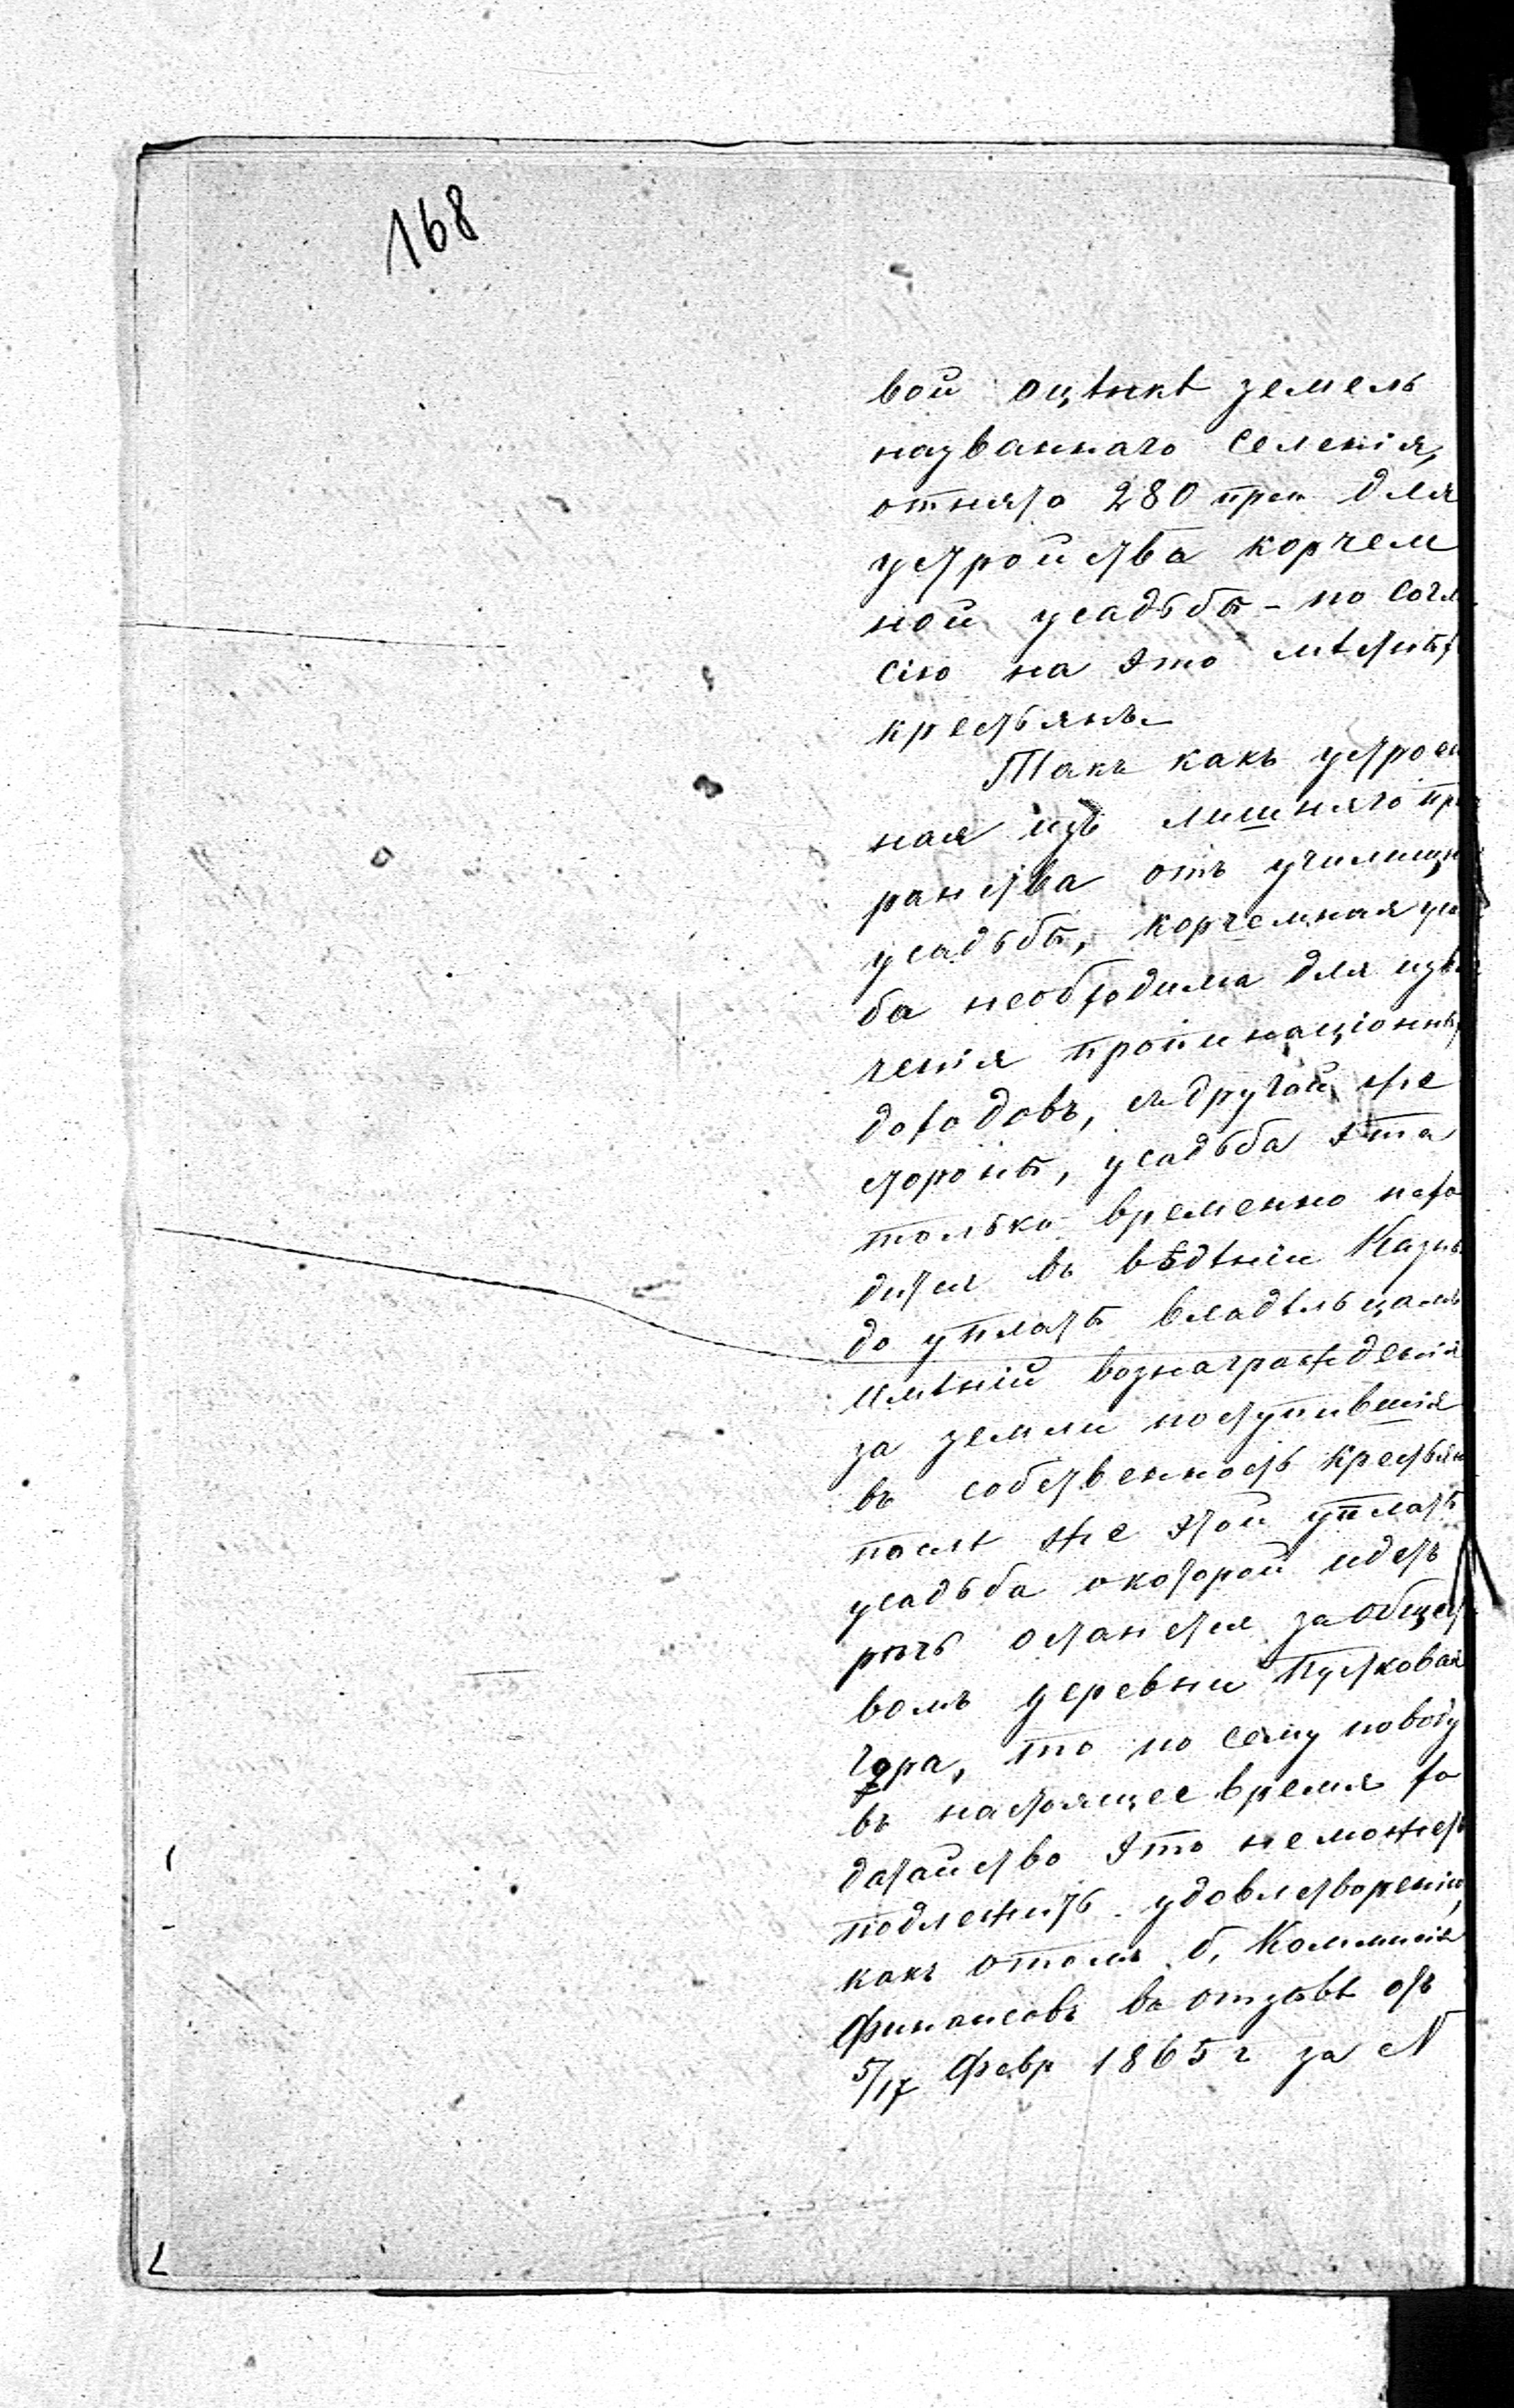 168
вой оцѣнкѣ земель
названнаго селенія,
отнято 280 прен для
устройства корчем
ной усадьбы - по согла
сію на это мѣстных
крестьянъ.
Такъ какъ устроен
ная изъ лишняго прост
ранства отъ училищн
усадьбы, корчемная усадь
ба необходима для извле
ченія пропинаціонных
доходовъ, съ другой же
стороны, усадьба эта
только временно нахо
дится въ вѣдѣніи Казны
до уплаты владѣльцамъ
имѣній вознагражденія
за земли поступившія
въ собственность крестьян
послѣ же этой уплаты
усадьба о которой идетъ
рѣчь останется за общест
вомъ деревни Пустковая
гора, то по сему поводу
въ настоящее время хо
датайство это не можетъ
подлежить удовлетворенію,
какъ о томъ б. Коммисія
Финансовъ въ отзывѣ отъ
5/17 Февр 1865 г за N